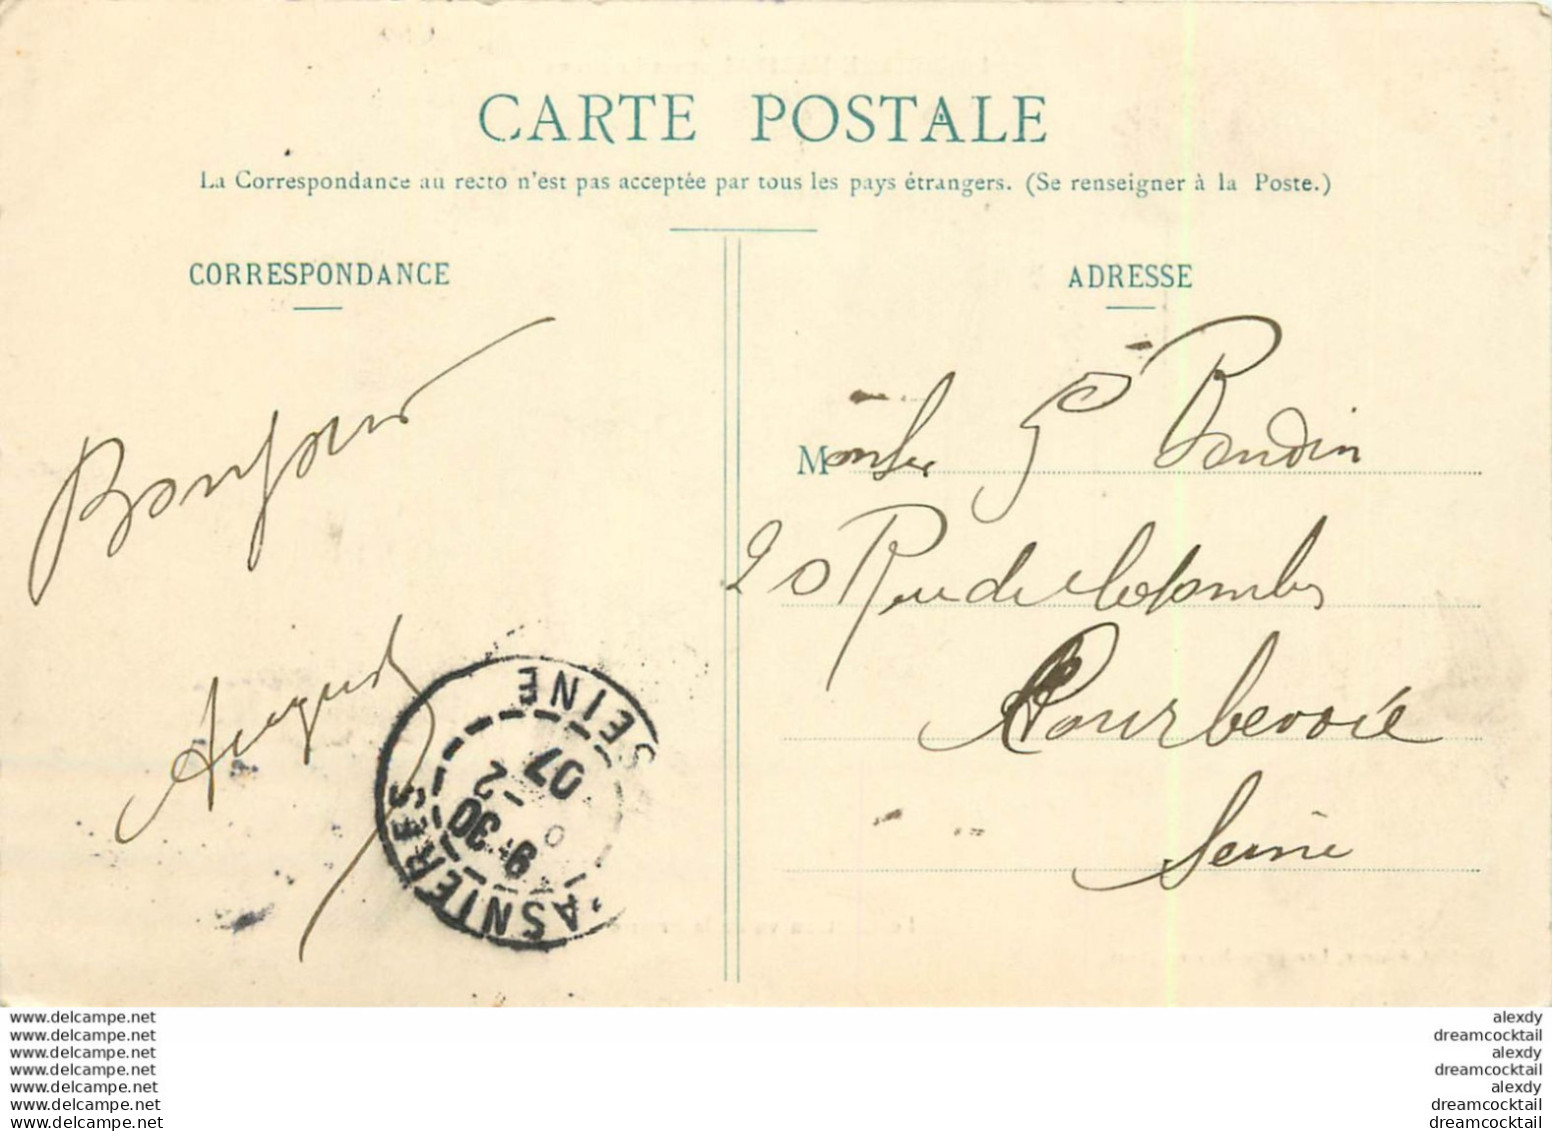 CARTE POSTALE
La Correspondance au recto n'est pas acceptée par tous les pays étrangers. (Se renseigner à la Poste.)
CORRESPONDANCE
ADRESSE
Bonjour
August
Monsieur G Baudin
20 Rue de Colombes
Courbevoie
Seine
ASNIERES SEINE
9-30
-2
07
www.delcampe.net
www.delcampe.net
www.delcampe.net
www.delcampe.net
www.delcampe.net
www.delcampe.net
www.delcampe.net
alexdy
dreamcocktail
alexdy
dreamcocktail
alexdy
dreamcocktail
dreamcocktail